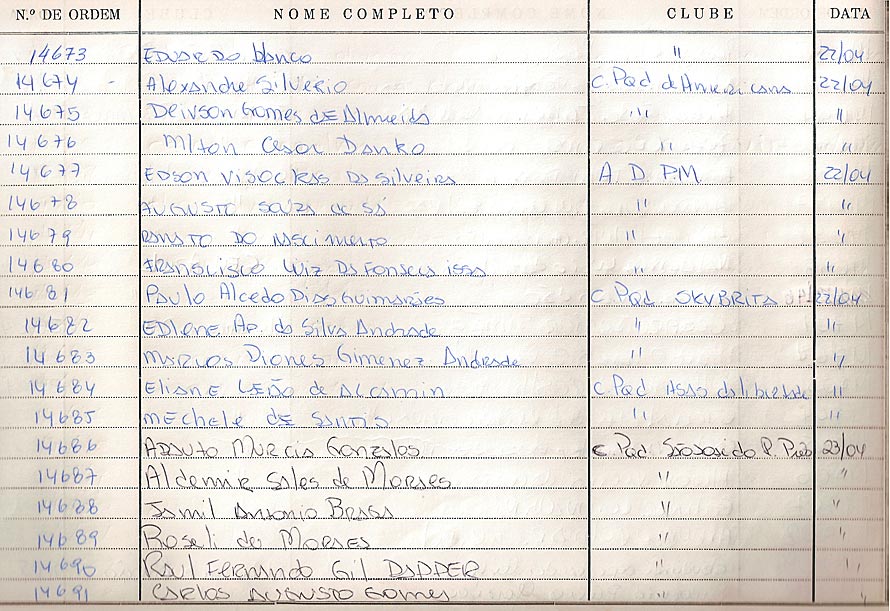 N.º DE ORDEM NOME COMPLETO CLUBE DATA
14673 EDUARDO blanco " 22/04
14674 - Alexandre Silverio C. Pqd de Americana 22/04
14675 Deivson Gomes de Almeida " "
14676 Milton Cesar Danko " "
14677 EDSON da Silveira A. D. P.M. 22/04
14678 AUGUSTO souza de SÁ " "
14679 DO NASCIMENTO " "
14680 FRANSCISCO Luiz Da Fonseca issa " "
14681 Paulo Alcedo Dias Guimarães C. Pqd SKYBRITA 22/04
14682 EDLENE Ap. da Silva Andrade " "
14683 Marcos Diones Gimenez Andrade " "
14684 Eliane Leão de ALCAMIN C. Pqd Asas da liberdade "
14685 MECHELE de SANTIS " "
14686 Murcia Gonzalos C Pqd São José do R. Preto 23/04
14687 Aldemir Sales de Moraes " "
14688 Jamil Antonio Braga " "
14689 Roseli de Moraes " "
14690 Raul Fernando Gil DAPPER " "
14691 CARLOS AUGUSTO Gomes " "